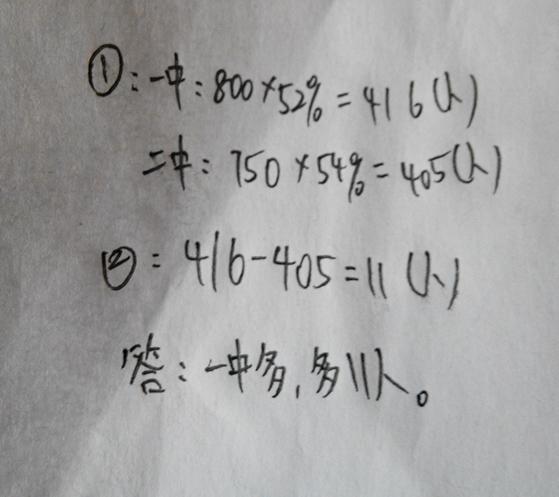 ①:一中:800×52%=416(人)
二中:750×54%=405(人)
②:416-405=11(人)
答:一中多,多11人。